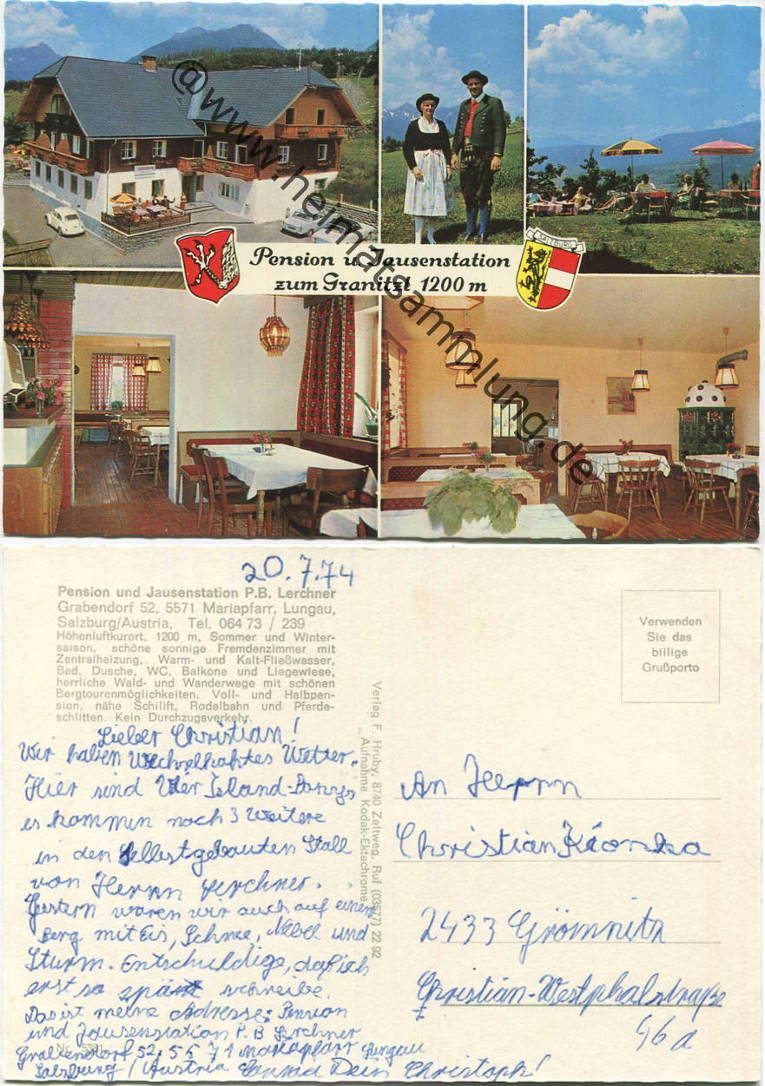 @www.heimatsammlung.de
SALZBURG
Pension u. Jausenstation
zum Granitzl 1200 m
20.7.74
Pension und Jausenstation P.B. Lerchner
Grabendorf 52, 5571 Mariapfarr, Lungau,
Salzburg/Austria, Tel. 064 73 / 239
Höhenluftkurort, 1200 m, Sommer und Winter-
saison, schöne sonnige Fremdenzimmer mit
Zentralheizung, Warm- und Kalt-Fließwasser,
Bad, Dusche, WC, Balkone und Liegewiese,
herrliche Wald- und Wanderwege mit schönen
Bergtourenmöglichkeiten, Voll- und Halbpen-
sion, nähe Schilift, Rodelbahn und Pferde-
schlitten. Kein Durchzugsverkehr.
Lieber Christian!
Wir haben Wechselhaftes Wetter.
Hier sind Vier Island-Ponnys
es kommen noch 3 Weitere
in den Selbstgebauten Stall
von Herrn Lerchner.
Gestern waren wir auch auf einem
Berg mit Eis, Schnee, Nebel und
Sturm. Entschuldige, daß ich
erst so spät schreibe.
Das ist meine Adresse: Pension
und Jausenstation P.B Lerchner
Grabendorf 52, 5571 Mariapfarr Lungau
Salzburg / Austria Dein Christoph!
Nr.
Verlag F. Hruby, 8740 Zeltweg, Ruf (03577) 22 92
Aufnahme Kodak-Ektachrome
Verwenden
Sie das
billige
Grußporto
An Herrn
Christian
2433 Grömnitz
Christian-Westphalstraße
46a